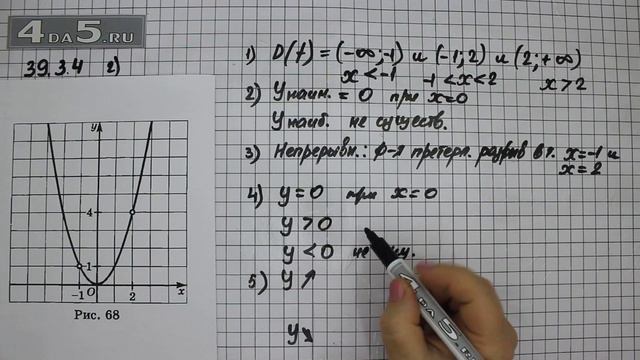 4DA5.RU
39.3.4 г)
y
4
1
-1 O 2 x
Рис. 68
1) D(f) = (-∞; -1) и (-1; 2) и (2; +∞)
x < -1 -1 < x < 2 x > 2
2) Yнаим. = 0 при x=0
Yнаиб. не существ.
3) Непрерывн.: ф-я претерп. разрыв в т. x=-1 и
x=2
4) y=0 при x=0
y>0
y<0
5) y↗
y↘
4DA5.RU